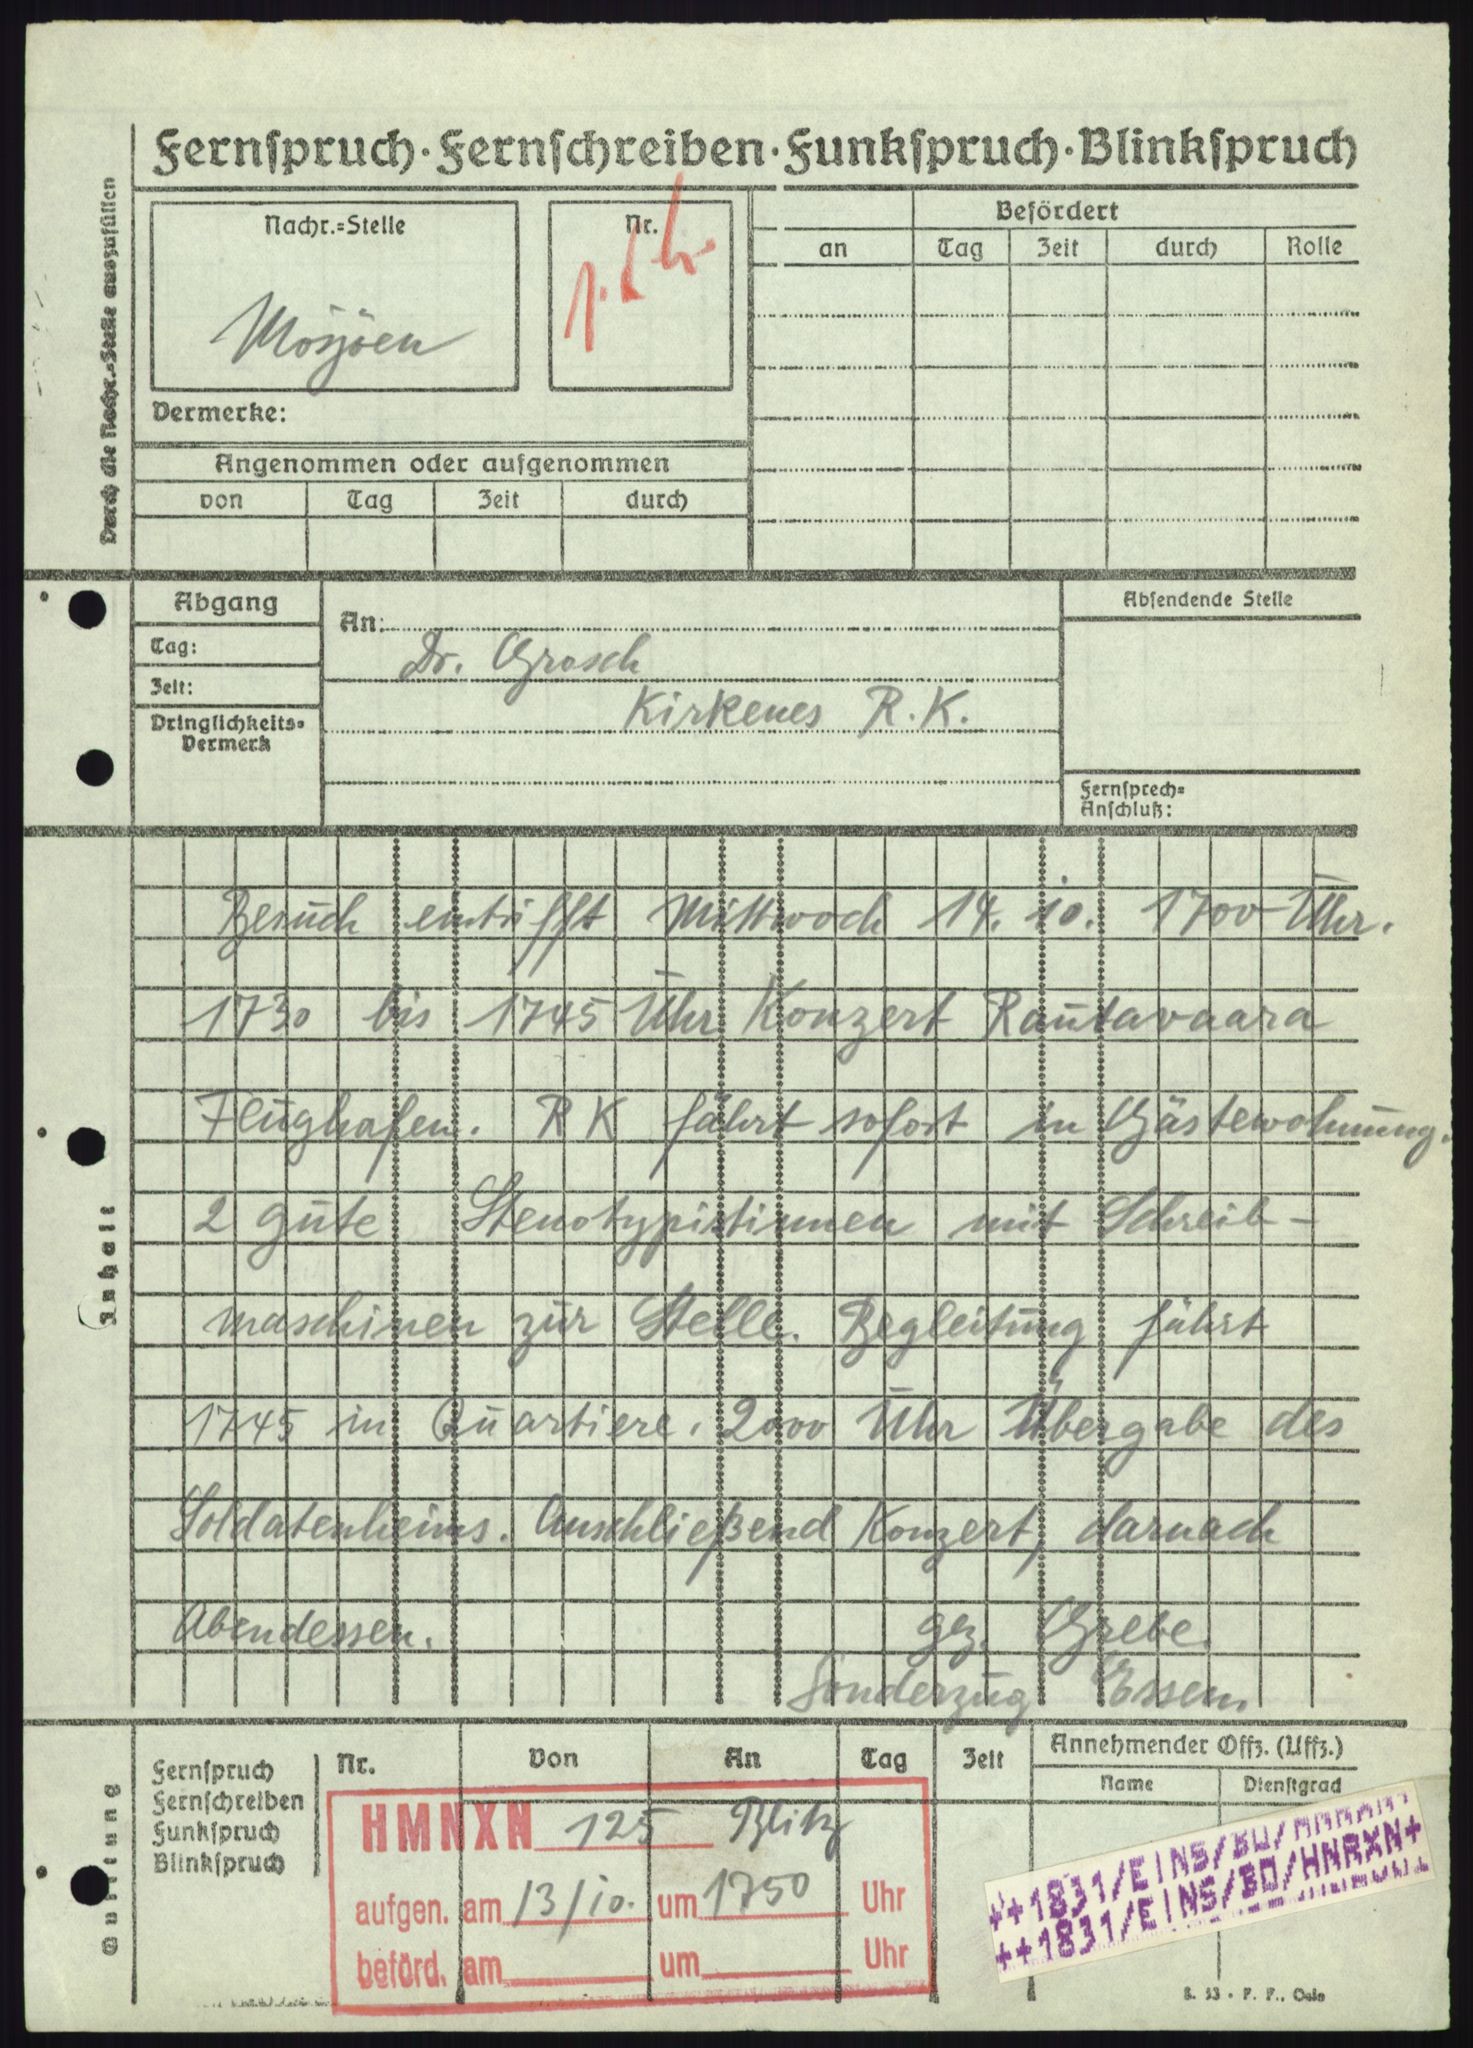 Fernspruch · Fernschreiben · Funkspruch · Blinkspruch
Durch die Nachr.=Stelle auszufüllen
Nachr.=Stelle
Mosjöen
Nr.
Befördert
an
Tag
Zeit
durch
Rolle
Vermerke:
Angenommen oder aufgenommen
von
Tag
Zeit
durch
Abgang
Tag:
Zeit:
Dringlichkeits=
Vermerk
An:
Dr. Grosch
Kirkenes R.K.
Absendende Stelle
Fernsprech=
Anschluß:
Inhalt
Besuch eintrifft Mittwoch 14. 10. 1700 Uhr.
1730 bis 1745 Uhr Konzert Rautavaara
Flughafen. RK fährt sofort in Gästewohnung.
2 gute Stenotypistinnen mit Schreib-
maschinen zur Stelle. Begleitung fährt
1745 in Quartiere. 2000 Uhr Übergabe des
Soldatenheims. Anschließend Konzert, darnach
Abendessen. gez. Grebe.
Sonderzug Essen.
Quittung
Fernspruch
Fernschreiben
Funkspruch
Blinkspruch
Nr.
Von
An
Tag
Zeit
Annehmender Offz. (Uffz.)
Name
Dienstgrad
HMNXN 125 Blitz
aufgen. am 13/10. um 1750 Uhr
beförd. am um Uhr
++1831/EINS/BO/HNRXN+
++1831/EINS/BO/HNRXN+
B. 53 · F. F., Oslo